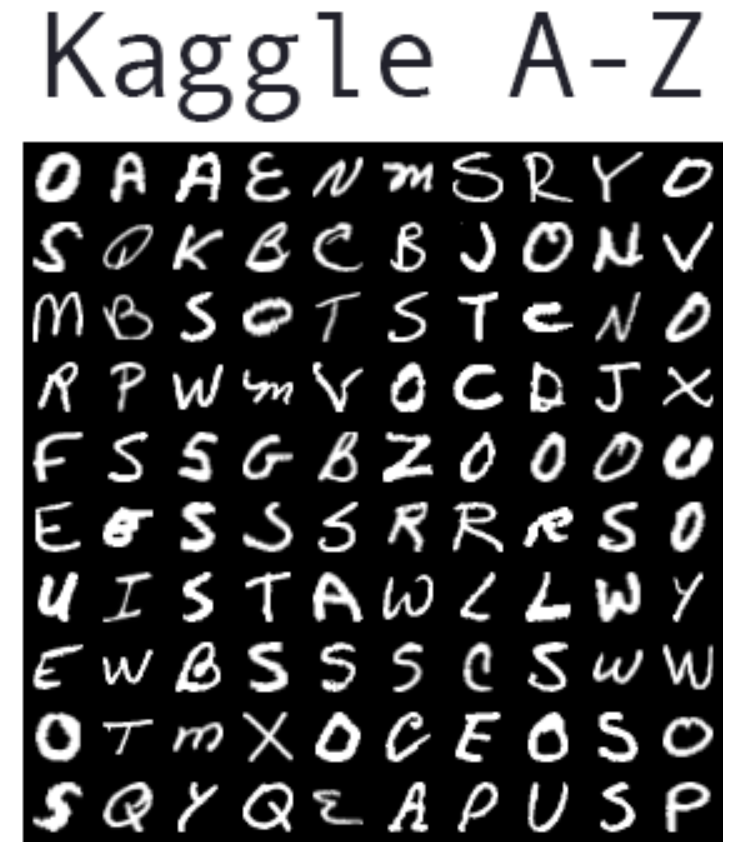 Kaggle A-Z
O A A E N m S R Y O
S Q K B C B J O N V
M B S O T S T C N O
R P W m V O C D J X
F S S G B Z O O O U
E S S S R R R S O
U I S T A W L L W Y
E W B S S S C S W W
O T m X O C E O S O
S Q Y Q E A P U S P